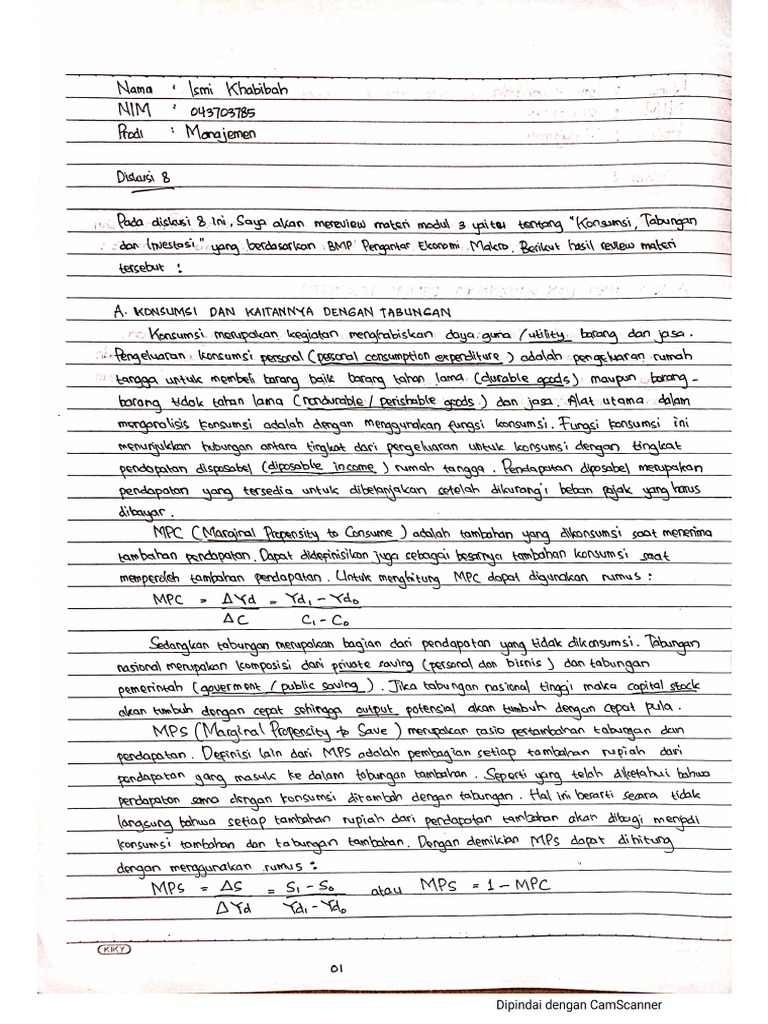 Nama : Ismi Khabibah
NIM : 043703785
Prodi : Manajemen
Diskusi 8
Pada diskusi 8 ini, Saya akan mereview materi modul 3 yaitu tentang "Konsumsi, Tabungan
dan Investasi" yang berdasarkan BMP Pengantar Ekonomi Makro. Berikut hasil review materi
tersebut :
A. KONSUMSI DAN KAITANNYA DENGAN TABUNGAN
Konsumsi merupakan kegiatan menghabiskan daya guna /utility barang dan jasa.
Pengeluaran konsumsi personal (personal consumption expenditure) adalah pengeluaran rumah
tangga untuk membeli barang baik barang tahan lama (durable goods) maupun barang-
barang tidak tahan lama (nondurable / perishable goods) dan jasa. Alat utama dalam
menganalisis konsumsi adalah dengan menggunakan fungsi konsumsi. Fungsi konsumsi ini
menunjukkan hubungan antara tingkat dari pengeluaran untuk konsumsi dengan tingkat
pendapatan disposabel (diposable income) rumah tangga. Pendapatan diposabel merupakan
pendapatan yang tersedia untuk dibelanjakan setelah dikurangi beban pajak yang harus
dibayar.
MPC (Marginal Propensity to Consume) adalah tambahan yang dikonsumsi saat menerima
tambahan pendapatan. Dapat didefinisikan juga sebagai besarnya tambahan konsumsi saat
memperoleh tambahan pendapatan. Untuk menghitung MPC dapat digunakan rumus :
MPC = ΔYd = Yd₁ - Yd₀
ΔC C₁ - C₀
Sedangkan tabungan merupakan bagian dari pendapatan yang tidak dikonsumsi. Tabungan
nasional merupakan komposisi dari private saving (personal dan bisnis) dan tabungan
pemerintah (goverment / public saving). Jika tabungan nasional tinggi maka capital stock
akan tumbuh dengan cepat sehingga output potensial akan tumbuh dengan cepat pula.
MPS (Marginal Propensity to Save) merupakan rasio pertambahan tabungan dan
pendapatan. Definisi lain dari MPS adalah pembagian setiap tambahan rupiah dari
pendapatan yang masuk ke dalam tabungan tambahan. Seperti yang telah diketahui bahwa
pendapatan sama dengan konsumsi ditambah dengan tabungan. Hal ini berarti secara tidak
langsung bahwa setiap tambahan rupiah dari pendapatan tambahan akan dibagi menjadi
konsumsi tambahan dan tabungan tambahan. Dengan demikian MPS dapat dihitung
dengan menggunakan rumus :
MPS = ΔS = S₁ - S₀ atau MPS = 1 - MPC
ΔYd Yd₁ - Yd₀
KIKY
01
Dipindai dengan CamScanner